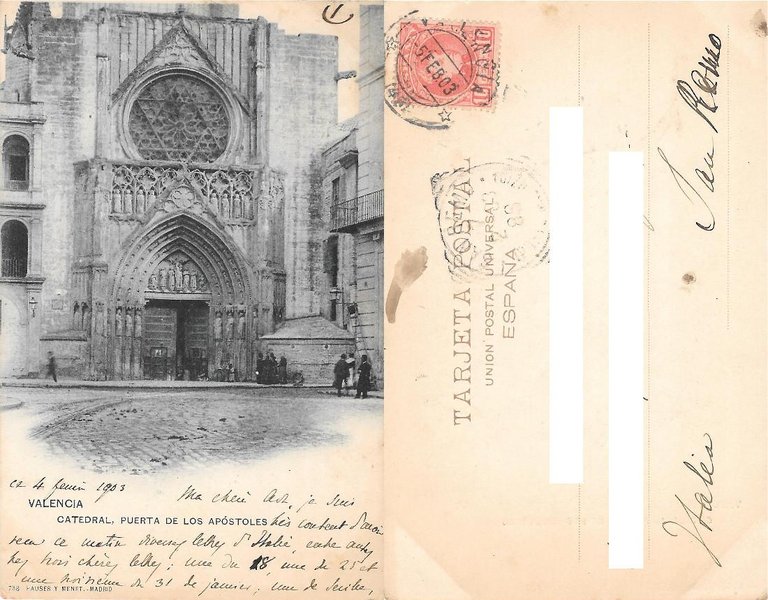 ce 4 février 1903
VALENCIA
CATEDRAL, PUERTA DE LOS APÓSTOLES
Ma chère je suis
très content d'avoir
reçu ce matin diverses lettres d'Italie, entre autres
trois chères lettres; une du 18 une de 25 et
une troisième du 31 de janvier; une de
738 HAUSER Y MENET.-MADRID
5 FEB 03
TARJETA POSTAL
UNION POSTAL UNIVERSAL
ESPAÑA
San Remo
Italia